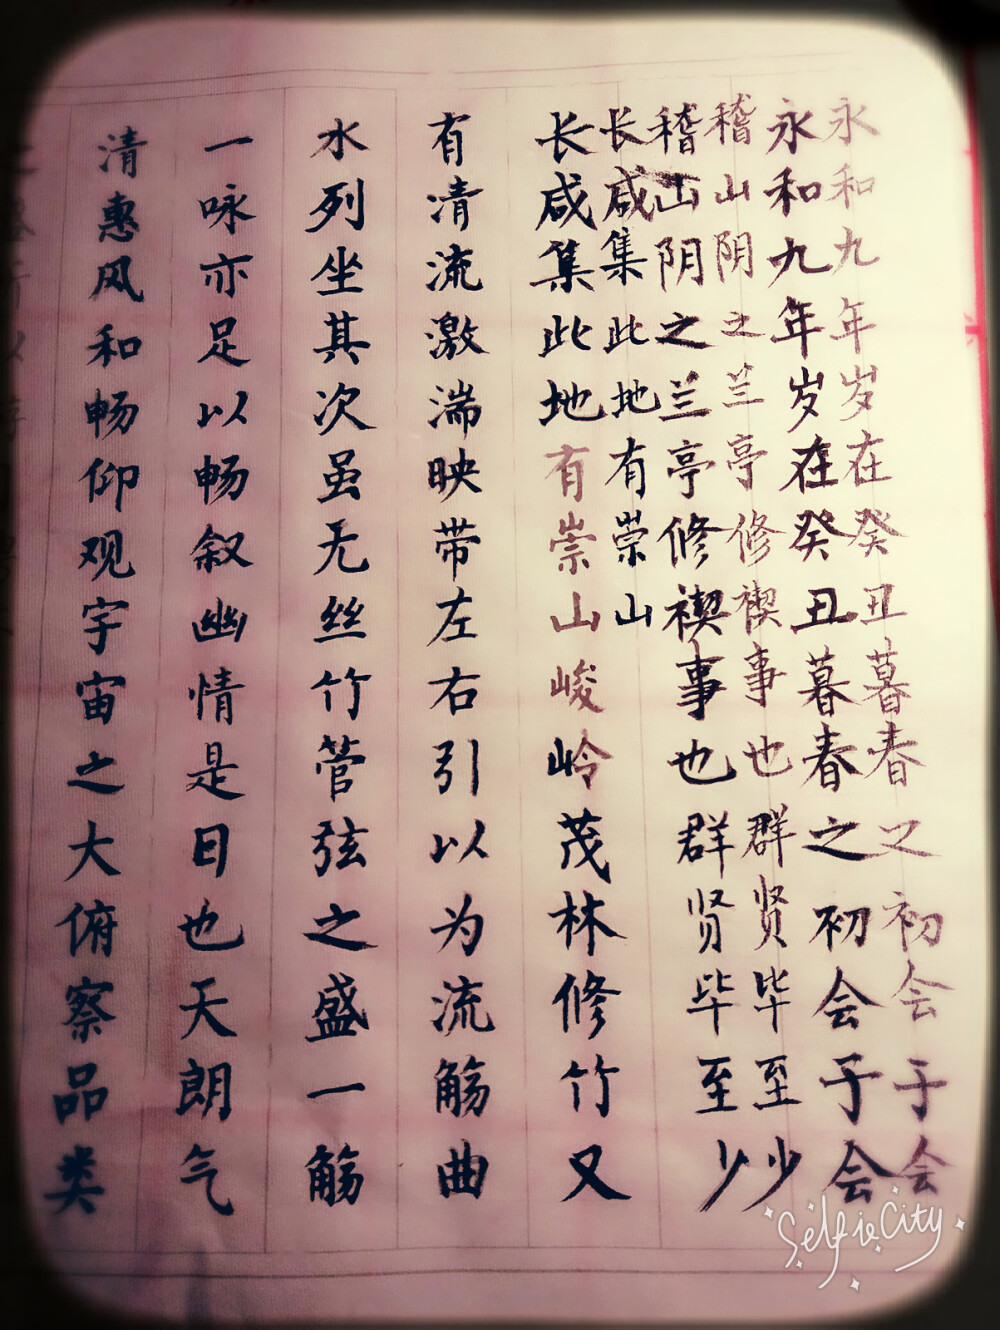 永和九年岁在癸丑暮春之初会于会
永和九年岁在癸丑暮春之初会于会
稽山阴之兰亭修禊事也群贤毕至少
稽山阴之兰亭修禊事也群贤毕至少
长咸集此地有崇山
长咸集此地有崇山峻岭茂林修竹又
有清流激湍映带左右引以为流觞曲
水列坐其次虽无丝竹管弦之盛一觞
一咏亦足以畅叙幽情是日也天朗气
清惠风和畅仰观宇宙之大俯察品类
Selfie City